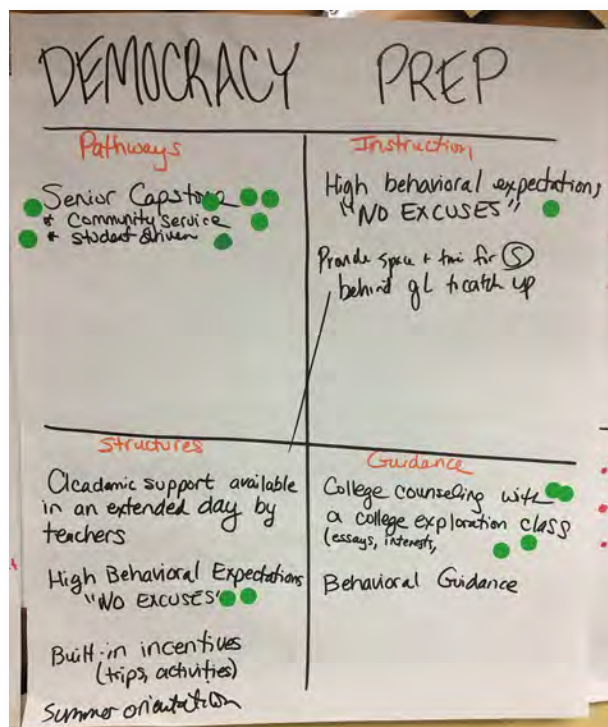 DEMOCRACY PREP
Pathways
Senior Capstone
* Community Service
* Student driven
Instruction
High behavioral expectations,
"NO EXCUSES"
Provide space + time for Ⓢ
behind gL to catch up
Structures
Academic support available
in an extended day by
teachers
High Behavioral Expectations
"NO EXCUSES"
Built-in incentives
(trips, activities)
Summer orientation
Guidance
College counseling with
a college exploration class
(essays, interests,
Behavioral Guidance